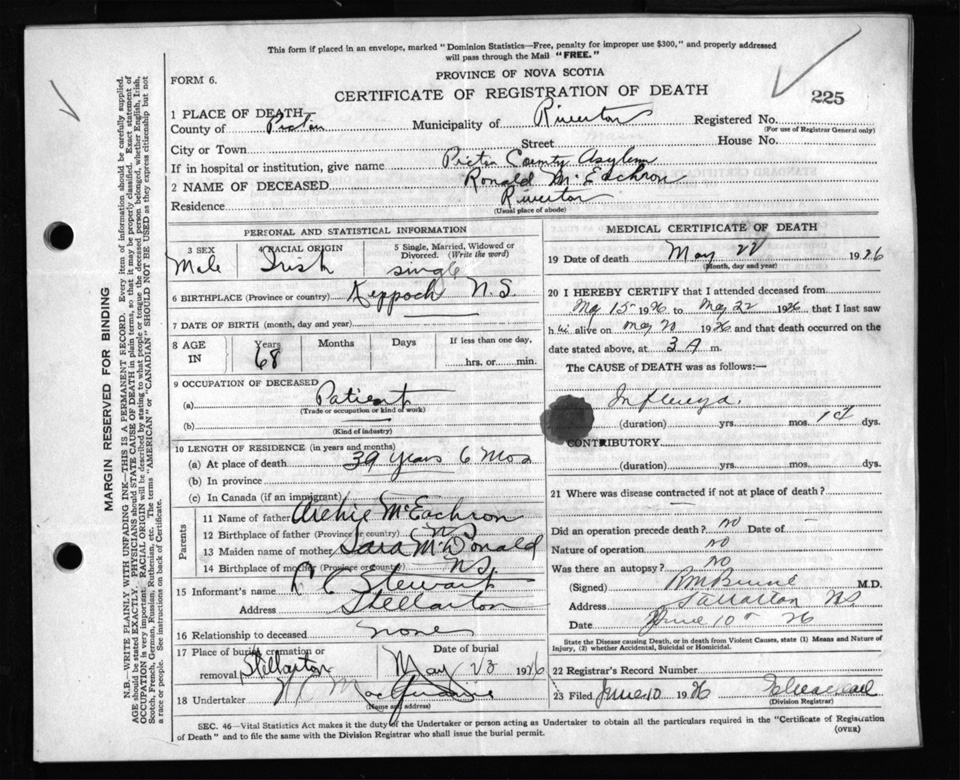 This form if placed in an envelope, marked "Dominion Statistics—Free, penalty for improper use $300," and properly addressed
will pass through the Mail "FREE."
FORM 6.
PROVINCE OF NOVA SCOTIA
CERTIFICATE OF REGISTRATION OF DEATH
225
1 PLACE OF DEATH
County of Pictou Municipality of Riverton Registered No.
(For use of Registrar General only)
City or Town Street House No.
If in hospital or institution, give name Pictou County Asylum
2 NAME OF DECEASED Ronald McEachron
Residence Riverton
(Usual place of abode)
PERSONAL AND STATISTICAL INFORMATION
3 SEX 4 RACIAL ORIGIN 5 Single, Married, Widowed or
Divorced. (Write the word)
Male Irish single
6 BIRTHPLACE (Province or country) Keppoch N.S.
7 DATE OF BIRTH (month, day and year)
8 AGE IN Years Months Days If less than one day,
68 hrs. or min.
9 OCCUPATION OF DECEASED
(a) Patient
(Trade or occupation or kind of work)
(b)
(Kind of industry)
10 LENGTH OF RESIDENCE (in years and months)
(a) At place of death 39 years 6 Mos
(b) In province
(c) In Canada (if an immigrant)
Parents
11 Name of father Archie McEachron
12 Birthplace of father (Province or country) N.S.
13 Maiden name of mother Sara McDonald
14 Birthplace of mother (Province or country) N.S.
15 Informant's name Stewart
Address Stellarton
16 Relationship to deceased none
17 Place of burial, cremation or Date of burial
removal Stellarton May 23 1926
18 Undertaker
(Name and address)
MEDICAL CERTIFICATE OF DEATH
19 Date of death May 22 1926
(Month, day and year)
20 I HEREBY CERTIFY that I attended deceased from
May 15 1926 to May 22 1926 that I last saw
him alive on May 20 1926 and that death occurred on the
date stated above, at 3 A m.
The CAUSE of DEATH was as follows:—
Influenza.
(duration) yrs. mos. dys.
CONTRIBUTORY
(duration) yrs. mos. dys.
21 Where was disease contracted if not at place of death?
Did an operation precede death? no Date of —
Nature of operation no
Was there an autopsy? no
(Signed) M.D.
Address NS
Date June 10 26
State the Disease causing Death, or in death from Violent Causes, state (1) Means and Nature of
Injury, (2) whether Accidental, Suicidal or Homicidal.
22 Registrar's Record Number
23 Filed June 10 1926
(Division Registrar)
SEC. 46—Vital Statistics Act makes it the duty of the Undertaker or person acting as Undertaker to obtain all the particulars required in the "Certificate of Registration
of Death" and to file the same with the Division Registrar who shall issue the burial permit.
(OVER)
MARGIN RESERVED FOR BINDING
N.B.—WRITE PLAINLY WITH UNFADING INK—THIS IS A PERMANENT RECORD. Every item of information should be carefully supplied.
AGE should be stated EXACTLY. PHYSICIANS should STATE CAUSE OF DEATH in plain terms, so that it may be properly classified. Exact statement of
OCCUPATION is very important. RACIAL ORIGIN will be described by stating to what people or tongue the deceased person belonged, whether English, Irish,
Scotch, French, German, Russian, Ruthenian, etc. The terms "AMERICAN" or "CANADIAN" SHOULD NOT BE USED as they express citizenship but not
a race or people. See instructions on back of Certificate.